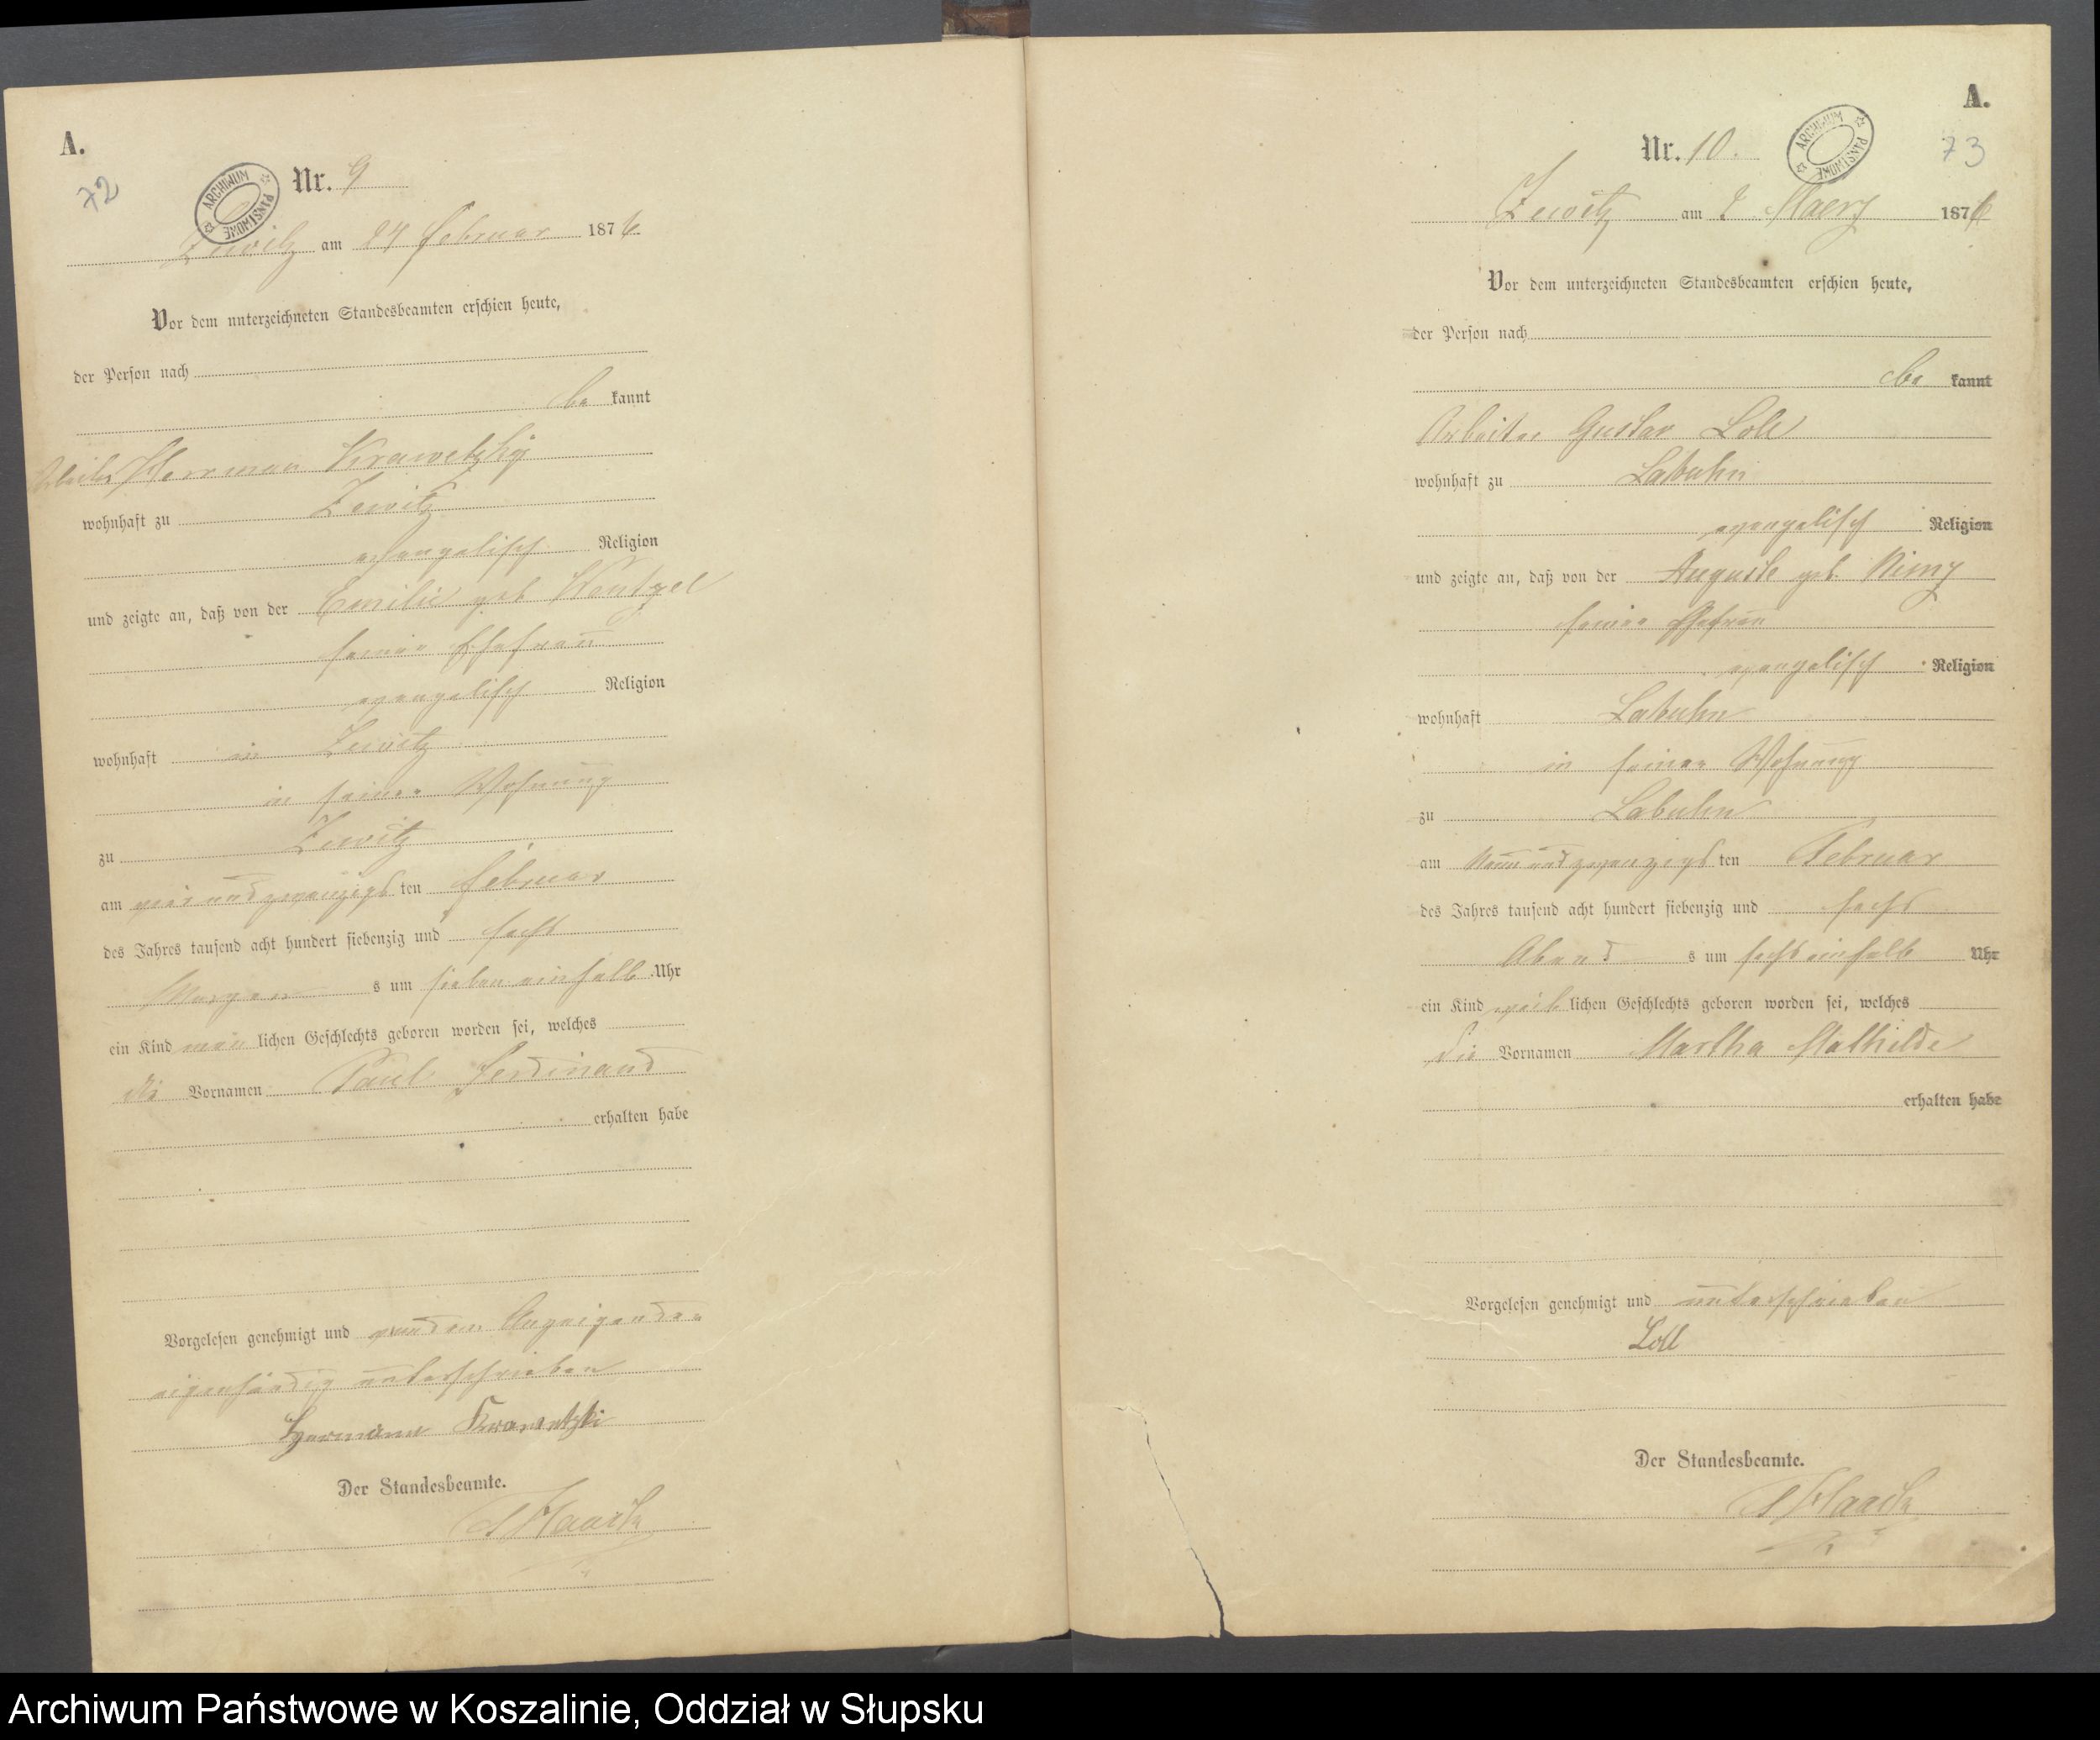 A.
72
ARCHIWUM PAŃSTWOWE
Nr. 9
Zewitz am 24 Februar 1876
Vor dem unterzeichneten Standesbeamten erschien heute,
der Person nach
be kannt
Herrman Krawetzky
wohnhaft zu Zewitz
evangelisch Religion
und zeigte an, daß von der Emilie geb
seiner Ehefrau
evangelisch Religion
wohnhaft in Zewitz
in seiner Wohnung
zu Zewitz
am vierundzwanzigsten Februar
des Jahres tausend acht hundert siebenzig und sechs
Morgen s um sieben einhalb Uhr
ein Kind männlichen Geschlechts geboren worden sei, welches
die Vornamen Paul Ferdinand
erhalten habe
Vorgelesen genehmigt und von dem Anzeigenden
eigenhändig unterschrieben
Hermann Krawetzki
Der Standesbeamte.
A.
73
ARCHIWUM PAŃSTWOWE
Nr. 10.
Zewitz am Maerz 1876
Vor dem unterzeichneten Standesbeamten erschien heute,
der Person nach
be kannt
Arbeiter Gustav Loll
wohnhaft zu Labuhn
evangelisch Religion
und zeigte an, daß von der Auguste geb.
seiner Ehefrau
evangelisch Religion
wohnhaft Labuhn
in seiner Wohnung
zu Labuhn
am neunundzwanzigsten Februar
des Jahres tausend acht hundert siebenzig und sechs
Abend s um sechs einhalb Uhr
ein Kind weiblichen Geschlechts geboren worden sei, welches
die Vornamen Martha Mathilde
erhalten habe
Vorgelesen genehmigt und unterschrieben
Loll
Der Standesbeamte.
Archiwum Państwowe w Koszalinie, Oddział w Słupsku